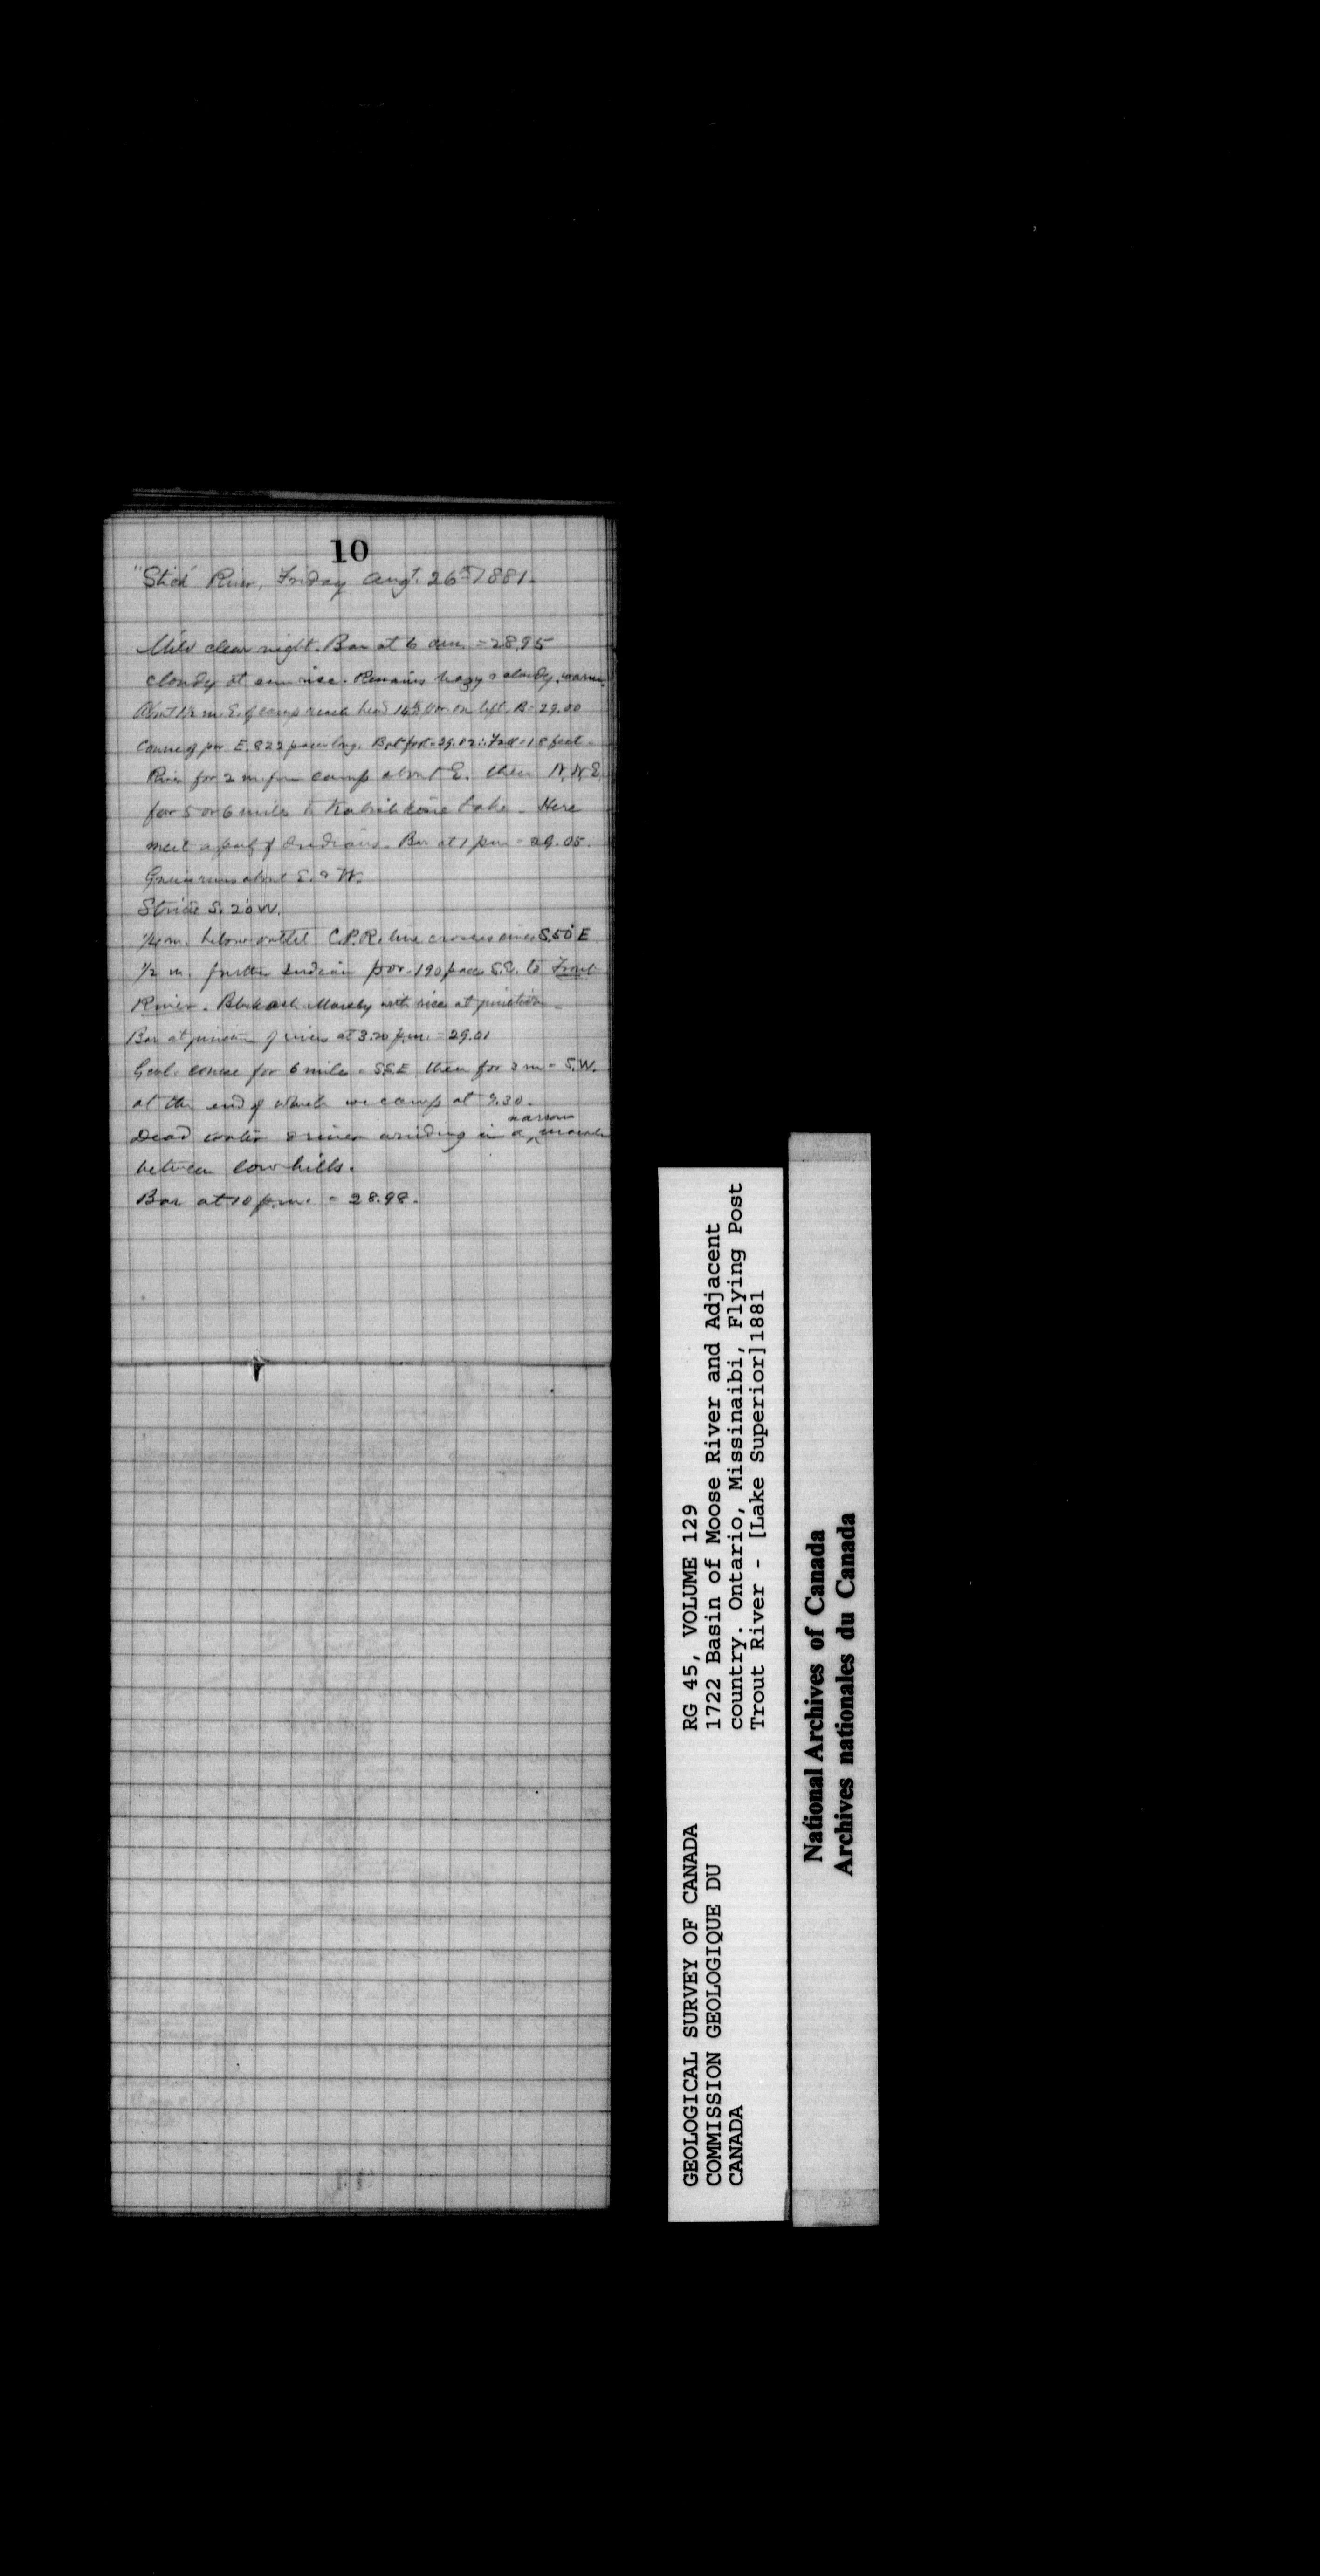 10
"Stick" River, Friday Augt. 26th 1881.
Mild clear night. Bar at 6 am. = 28.95
cloudy at sun rise. Remains hazy & cloudy, warm.
Abt 1½ m. E. of camp reach head 14th Por. on left. B = 29.00
Course of por E. 822 paces long. B at foot = 29.02 ∴ Fall = 18 feet.
River for 2 m. from camp about E. then N.N.E.
for 5 or 6 miles to Lake - Here
meet a party of Indians. Bar at 1 pm = 29.05.
Gneiss runs about E. & W.
Striae S. 20 W.
¼ m. below outlet C.P.R. line crosses river S.50°E
½ m. further Indian por. 190 paces S.E. to Trout
River. Black ash. Marshy with rice at junction.
Bar at junction of rivers at 3.20 p.m. = 29.01
Genl. course for 6 miles = S.S.E. then for 3 m = S.W.
at the end of which we camp at 7.30.
Dead water & river winding in a narrow
between low hills.
Bar at 10 p.m. = 28.98.
GEOLOGICAL SURVEY OF CANADA
COMMISSION GEOLOGIQUE DU
CANADA
RG 45, VOLUME 129
1722 Basin of Moose River and Adjacent
country. Ontario, Missinaibi, Flying Post
Trout River - [Lake Superior] 1881
National Archives of Canada
Archives nationales du Canada